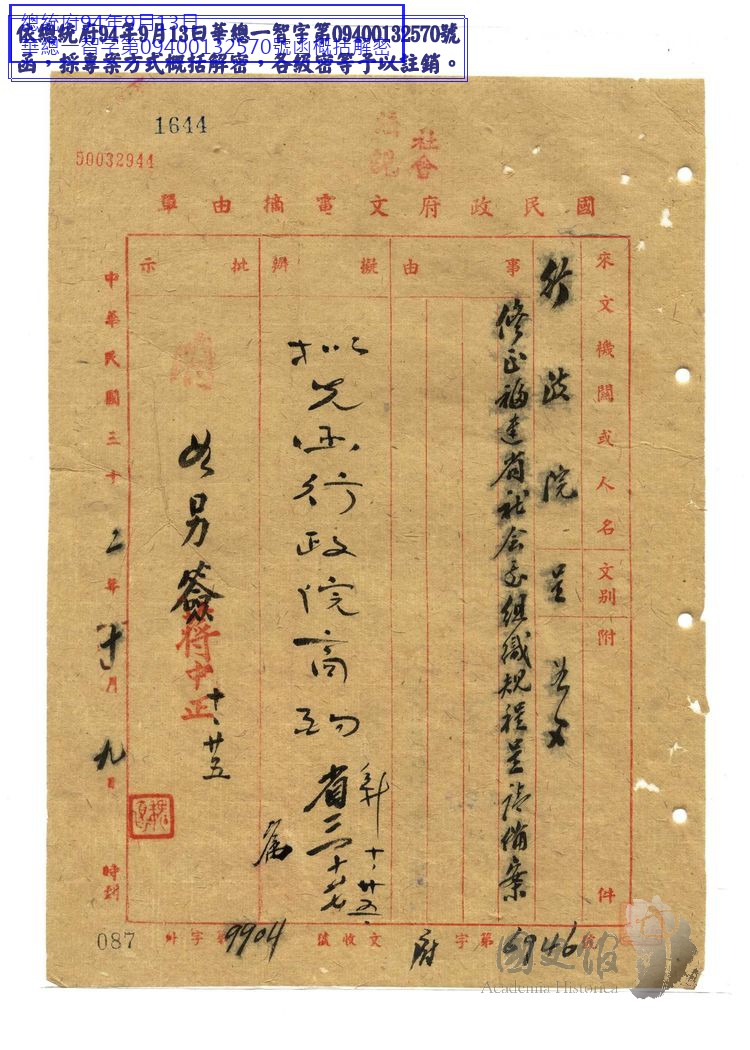 總統府94年9月13日
華總一智字第09400132570號函概括解密
依總統府94年9月13日華總一智字第09400132570號
函，採專案方式概括解密，各級密等予以註銷。
1644
50032944
社會
國民政府文電摘由單
來文機關或人名
文別
附
件
行政院
呈
事由
修正福建省社會處組織規程呈請備案
擬辦
擬先函行政院商酌
十、廿五
批示
如另簽
蔣中正
十、廿五
中華民國三十二年十月九日
時到
府字第6946號
收文號
字第9904
087
國史館
Academia Historica